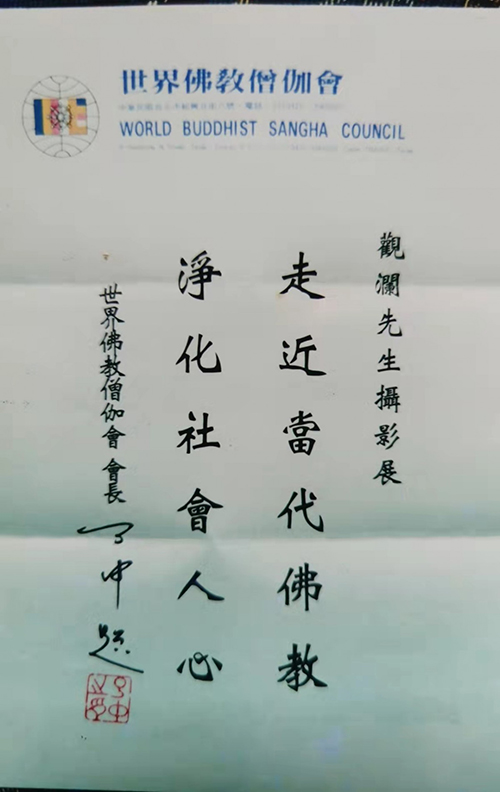 世界佛教僧伽會
WORLD BUDDHIST SANGHA COUNCIL
觀瀾先生攝影展
走近當代佛教
淨化社會人心
世界佛教僧伽會會長
了中題